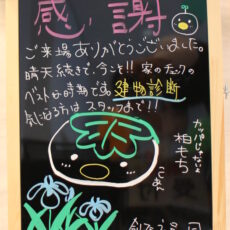 感謝
ご来場ありがとうございました。
晴天続きで、今こそ!! 家のチェックの
ベストな時期です。建物診断
気になる方は スタッフまで!!
カッパじゃないよ
柏もち